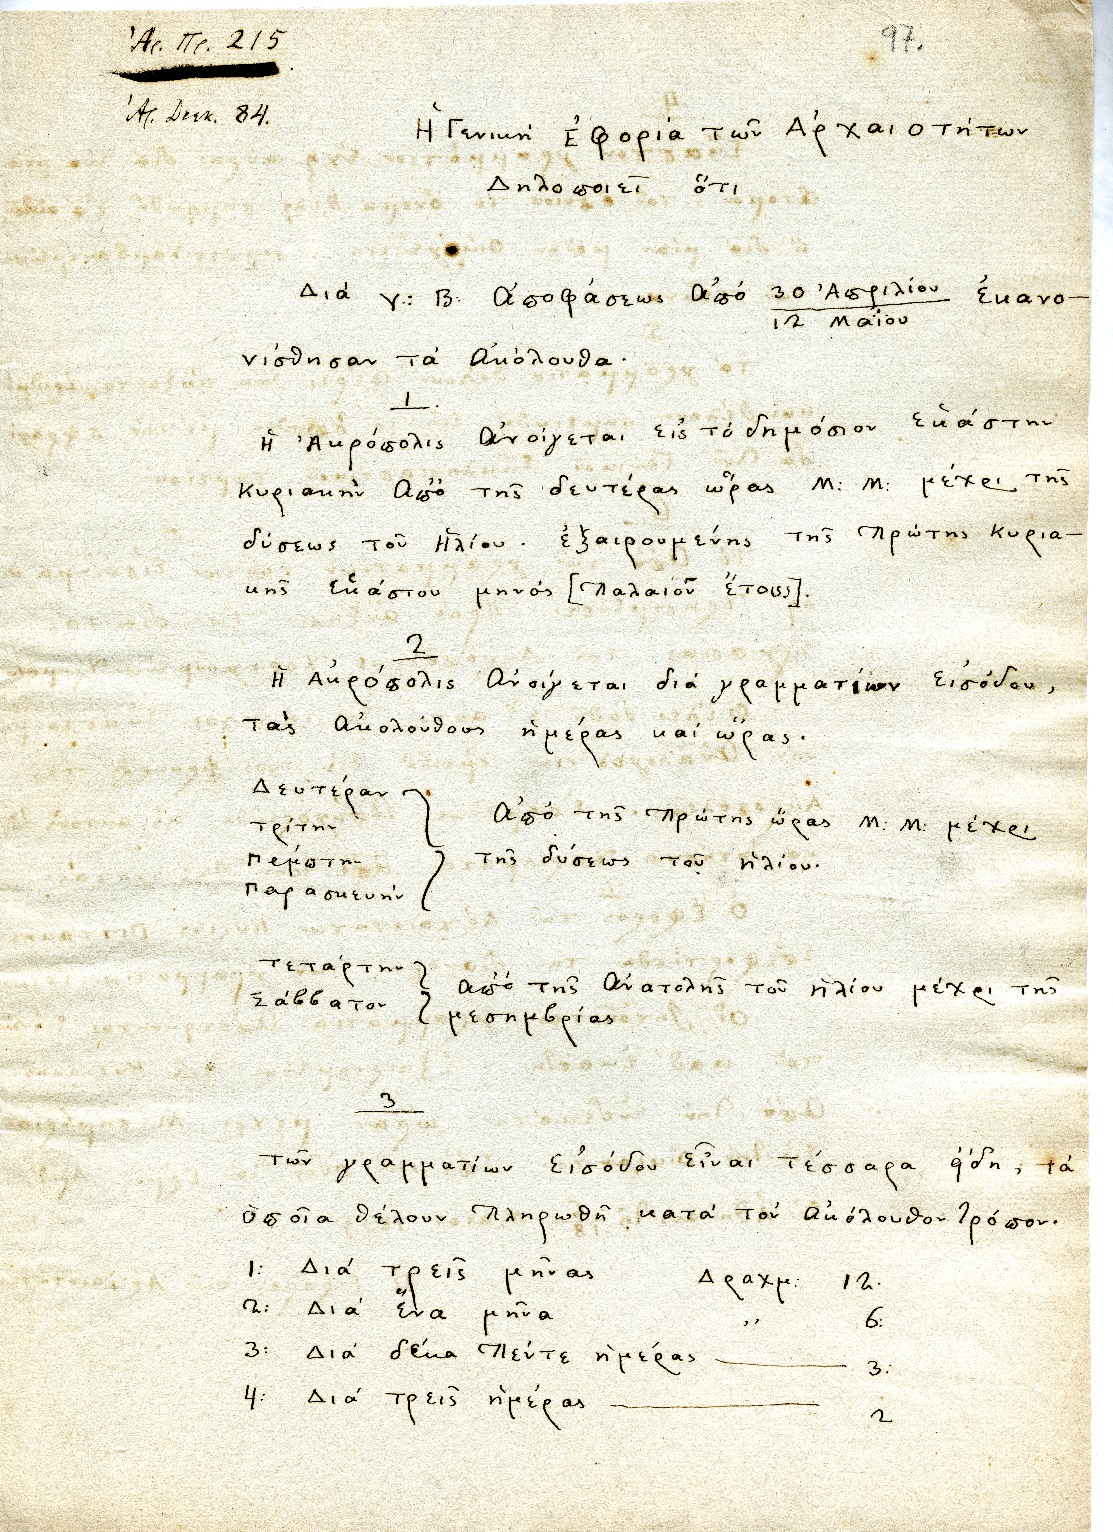 Ἀρ. Πρ. 215
97.
Ἀρ. Διεκ. 84.
Ἡ Γενικὴ Ἐφορία τῶν Ἀρχαιοτήτων
Δηλοποιεῖ ὅτι
Διὰ γ: Β: ἀποφάσεως ἀπὸ 30 Ἀπριλίου ἐκανο-
12 Μαΐου
νίσθησαν τὰ ἀκόλουθα.
1.
Ἡ Ἀκρόπολις ἀνοίγεται εἰς τὸ δημόσιον ἑκάστην
Κυριακὴν ἀπὸ τῆς δευτέρας ὥρας Μ: Μ: μέχρι τῆς
δύσεως τοῦ Ἡλίου. ἐξαιρουμένης τῆς πρώτης Κυρια-
κῆς ἑκάστου μηνὸς [παλαιοῦ ἔτους].
2
Ἡ Ἀκρόπολις ἀνοίγεται διὰ γραμματίων εἰσόδου,
τὰς ἀκολούθους ἡμέρας καὶ ὥρας.
Δευτέραν
τρίτην
Πέμπτην
Παρασκευὴν
ἀπὸ τῆς πρώτης ὥρας Μ: Μ: μέχρι
τῆς δύσεως τοῦ ἡλίου.
τετάρτην
Σάββατον
ἀπὸ τῆς ἀνατολῆς τοῦ ἡλίου μέχρι τῆς
μεσημβρίας
3
τῶν γραμματίων εἰσόδου εἶναι τέσσαρα ᾔδη, τὰ
ὁποῖα θέλουν πληρωθῆ κατὰ τὸν ἀκόλουθον τρόπον.
1: Διὰ τρεῖς μῆνας Δραχμ: 12.
2: Διὰ ἕνα μῆνα ,, 6:
3: Διὰ δέκα πέντε ἡμέρας — 3:
4: Διὰ τρεῖς ἡμέρας — 2